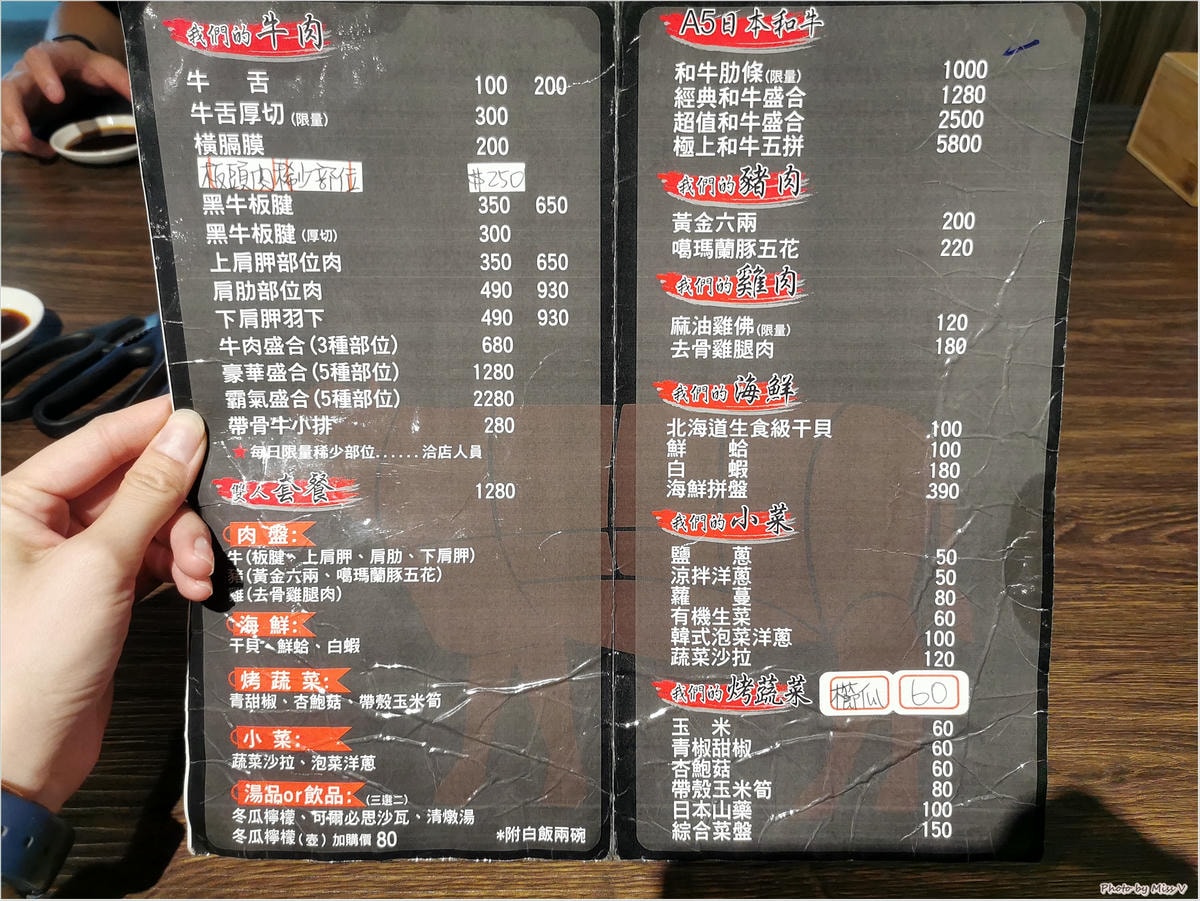 我們的牛肉
牛 舌 100 200
牛舌厚切(限量) 300
橫膈膜 200
板頭肉稀少部位 $250
黑牛板腱 350 650
黑牛板腱(厚切) 300
上肩胛部位肉 350 650
肩肋部位肉 490 930
下肩胛羽下 490 930
牛肉盛合(3種部位) 680
豪華盛合(5種部位) 1280
霸氣盛合(5種部位) 2280
帶骨牛小排 280
★每日限量稀少部位......洽店人員
雙人套餐 1280
肉盤:
牛(板腱、上肩胛、肩肋、下肩胛)
豬(黃金六兩、噶瑪蘭豚五花)
雞(去骨雞腿肉)
海鮮:
干貝、鮮蛤、白蝦
烤蔬菜:
青甜椒、杏鮑菇、帶殼玉米筍
小菜:
蔬菜沙拉、泡菜洋蔥
湯品or飲品:(三選二)
冬瓜檸檬、可爾必思沙瓦、清燉湯
冬瓜檸檬(壺)加購價 80
*附白飯兩碗
A5日本和牛
和牛肋條(限量) 1000
經典和牛盛合 1280
超值和牛盛合 2500
極上和牛五拼 5800
我們的豬肉
黃金六兩 200
噶瑪蘭豚五花 220
我們的雞肉
麻油雞佛(限量) 120
去骨雞腿肉 180
我們的海鮮
北海道生食級干貝 100
鮮 蛤 100
白 蝦 180
海鮮拼盤 390
我們的小菜
鹽 蔥 50
涼拌洋蔥 50
蘿 蔓 80
有機生菜 60
韓式泡菜洋蔥 100
蔬菜沙拉 120
我們的烤蔬菜 櫛瓜 60
玉 米 60
青椒甜椒 60
杏鮑菇 60
帶殼玉米筍 80
日本山藥 100
綜合菜盤 150
Photo by Miss V